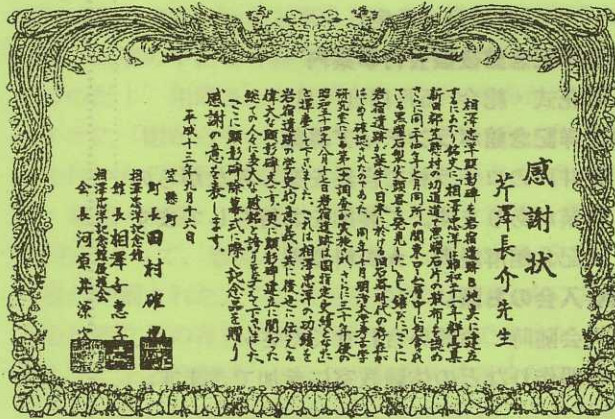 感謝状
芹澤長介先生
相澤忠洋顕彰碑を岩宿遺跡B地点に建立
するにあたり銘文に、相澤忠洋は昭和二十一年群馬県
新田郡笠懸村の切通道で黒曜石片の散布を認め
さらに同二十四年七月同所の関東ローム層中に包含され
ている黒曜石製尖頭器を発見した、と銘しここに
岩宿遺跡が誕生し日本に於ける旧石器時代の存在が
はじめて確認されたのであり、同年九月明治大学考古学
研究室による第一次調査が実施され、さらに三十年後の
昭和五十四年八月十三日岩宿遺跡は国指定史蹟となった
と揮毫して下さいました。これは相澤忠洋の功績を
岩宿遺跡の学史的意義と共に後世に伝える
偉大な顕彰碑文です。更に顕彰碑建立に関わった
総ての人に多大な感銘と誇りを与えて下さいました
ここに顕彰碑除幕式に際し記念品を贈り
感謝の意を表します。
平成十三年九月十六日
笠懸町
町長 田村確也
相澤忠洋記念館
館長 相澤千恵子
相澤忠洋記念館友援会
会長 河原井源次